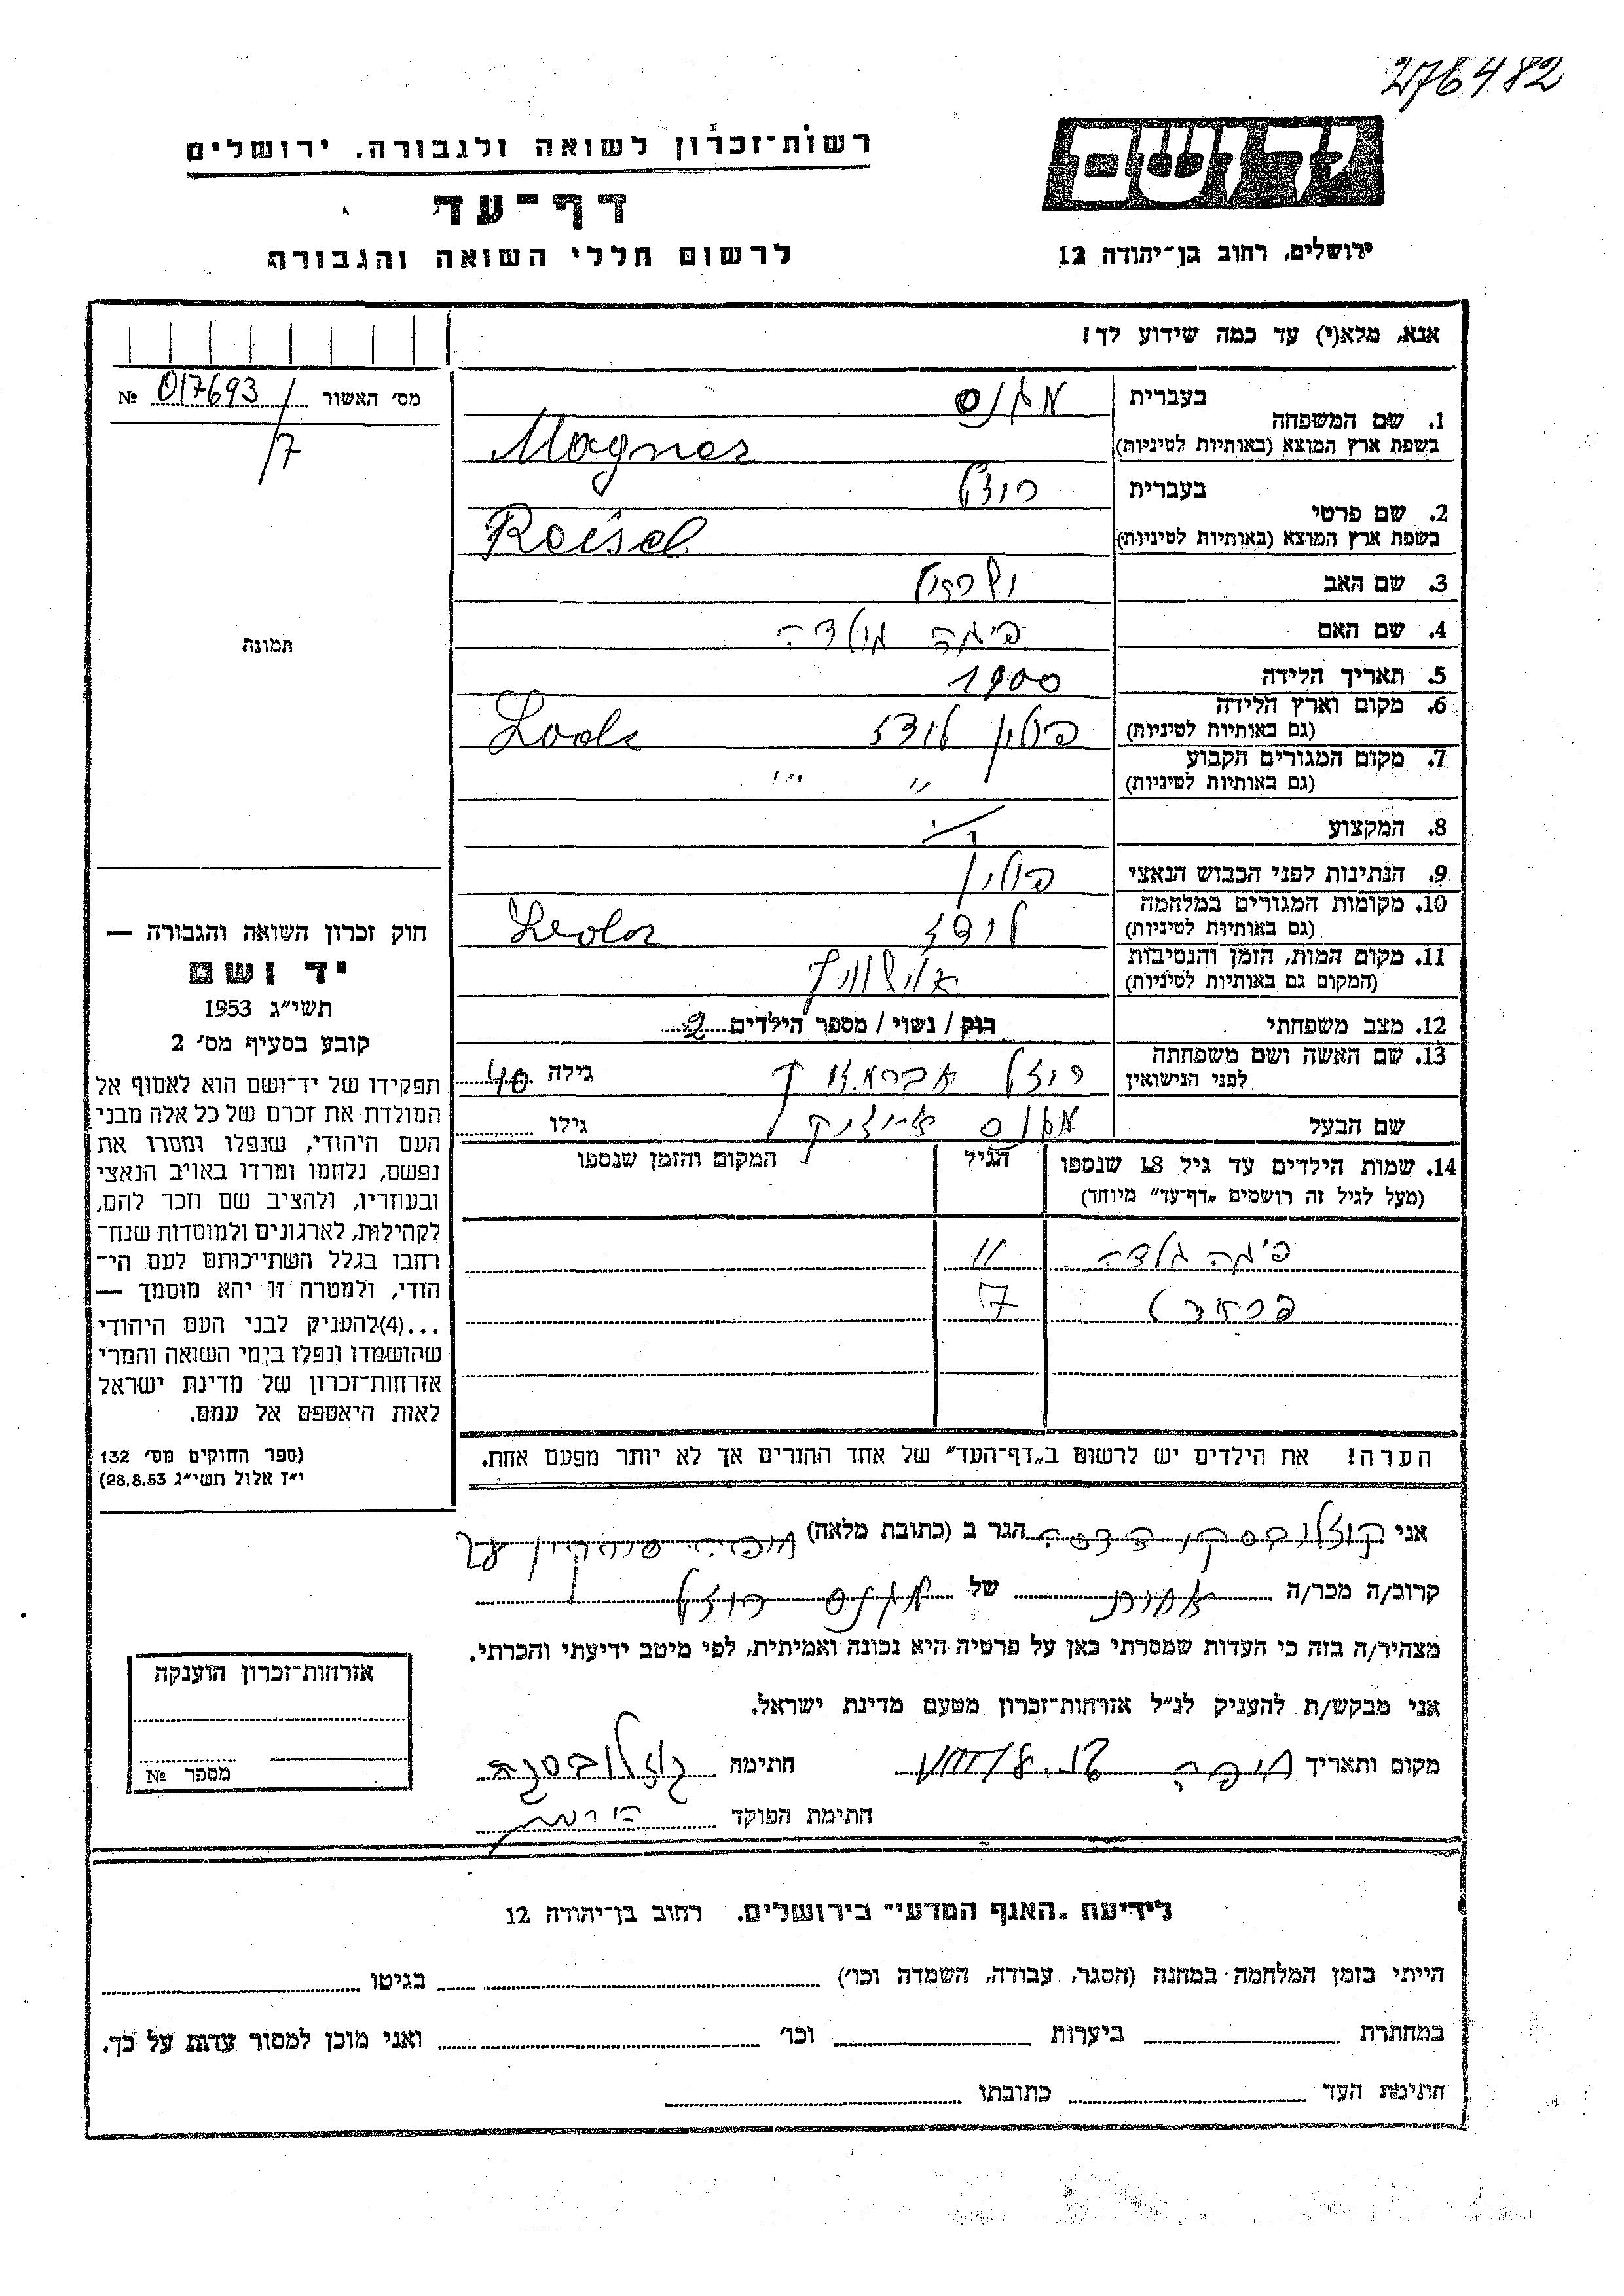 276482
יד ושם
רשות־זכרון לשואה ולגבורה, ירושלים
דף־עד
לרשום חללי השואה והגבורה
ירושלים, רחוב בן־יהודה 12
אנא, מלא(י) עד כמה שידוע לך!
מס׳ האשור № 017693
/7
תמונה
1. שם המשפחה
בעברית מגנס
בשפת ארץ המוצא (באותיות לטיניות) Magnes
2. שם פרטי
בעברית רוזל
בשפת ארץ המוצא (באותיות לטיניות) Reisel
3. שם האב ישראל
4. שם האם
5. תאריך הלידה 1900
6. מקום וארץ הלידה
(גם באותיות לטיניות) פולין לודז Lodz
7. מקום המגורים הקבוע
(גם באותיות לטיניות) " "
8. המקצוע
9. הנתינות לפני הכבוש הנאצי פולין
10. מקומות המגורים במלחמה
(גם באותיות לטיניות) לודז Lodz
11. מקום המות, הזמן והנסיבות
(המקום גם באותיות לטיניות) אושוויץ
12. מצב משפחתי רווק / נשוי / מספר הילדים 2
13. שם האשה ושם משפחתה
לפני הנישואין רוזל גילה 40
שם הבעל מגנס אייזיק גילו
14. שמות הילדים עד גיל 18 שנספו הגיל המקום והזמן שנספו
(מעל לגיל זה רושמים „דף־עד״ מיוחד)
גולדה 11
7
הערה! את הילדים יש לרשום ב„דף־העד״ של אחד ההורים אך לא יותר מפעם אחת.
חוק זכרון השואה והגבורה —
יד ושם
תשי״ג 1953
קובע בסעיף מס׳ 2
תפקידו של יד־ושם הוא לאסוף אל
המולדת את זכרם של כל אלה מבני
העם היהודי, שנפלו ומסרו את
נפשם, נלחמו ומרדו באויב הנאצי
ובעוזריו, ולהציב שם וזכר להם,
לקהילות, לארגונים ולמוסדות שנח־
רחבו בגלל השתייכותם לעם הי־
הודי, ולמטרה זו יהא מוסמך —
...(4)להעניק לבני העם היהודי
שהושמדו ונפלו בימי השואה והמרי
אזרחות־זכרון של מדינת ישראל
לאות היאספם אל עמם.
(ספר החוקים מס׳ 132
י״ז אלול תשי״ג 28.8.53)
אני קוזלובסקי הדסה הגר ב (כתובת מלאה) חיפה
קרוב/ה מכר/ה אחות של מגנס רוזל
מצהיר/ה בזה כי העדות שמסרתי כאן על פרטיה היא נכונה ואמיתית, לפי מיטב ידיעתי והכרתי.
אני מבקש/ת להעניק לנ״ל אזרחות־זכרון מטעם מדינת ישראל.
מקום ותאריך חיפה חתימה
חתימת הפוקד
אזרחות־זכרון הוענקה
מספר №
לידיעת „האגף המדעי״ בירושלים, רחוב בן־יהודה 12
הייתי בזמן המלחמה במחנה (הסגר, עבודה, השמדה וכו׳) בגיטו
במחתרת ביערות וכו׳ ואני מוכן למסור עדות על כך.
חתימת העד כתובתו